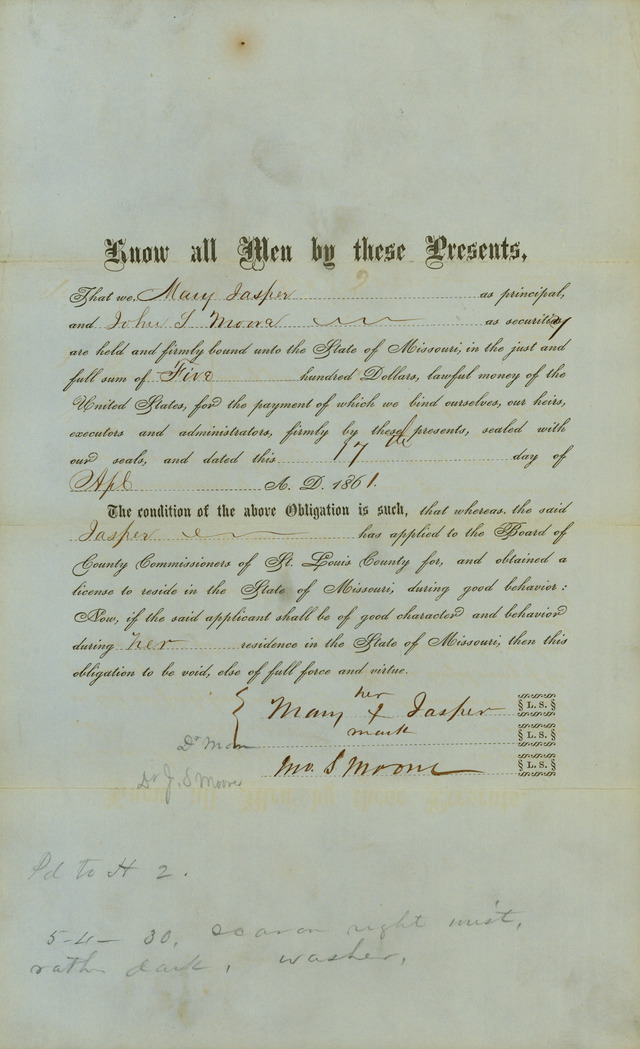 Know all Men by these Presents,
That we, Mary Jasper as principal,
and John S Moore as security
are held and firmly bound unto the State of Missouri, in the just and
full sum of Five hundred Dollars, lawful money of the
United States, for the payment of which we bind ourselves, our heirs,
executors and administrators, firmly by these presents, sealed with
our seals, and dated this 17th day of
Apl A. D. 1861.
The condition of the above Obligation is such, that whereas, the said
Jasper has applied to the Board of
County Commissioners of St. Louis County for, and obtained a
license to reside in the State of Missouri, during good behavior:
Now, if the said applicant shall be of good character and behavior
during her residence in the State of Missouri, then this
obligation to be void, else of full force and virtue.
her
Mary X Jasper L. S.
mark L. S.
Jno. S Moore L. S.
Dr J. S Moore
Pd to H 2.
5-4- 30. scar on right wrist,
rather dark, washer.